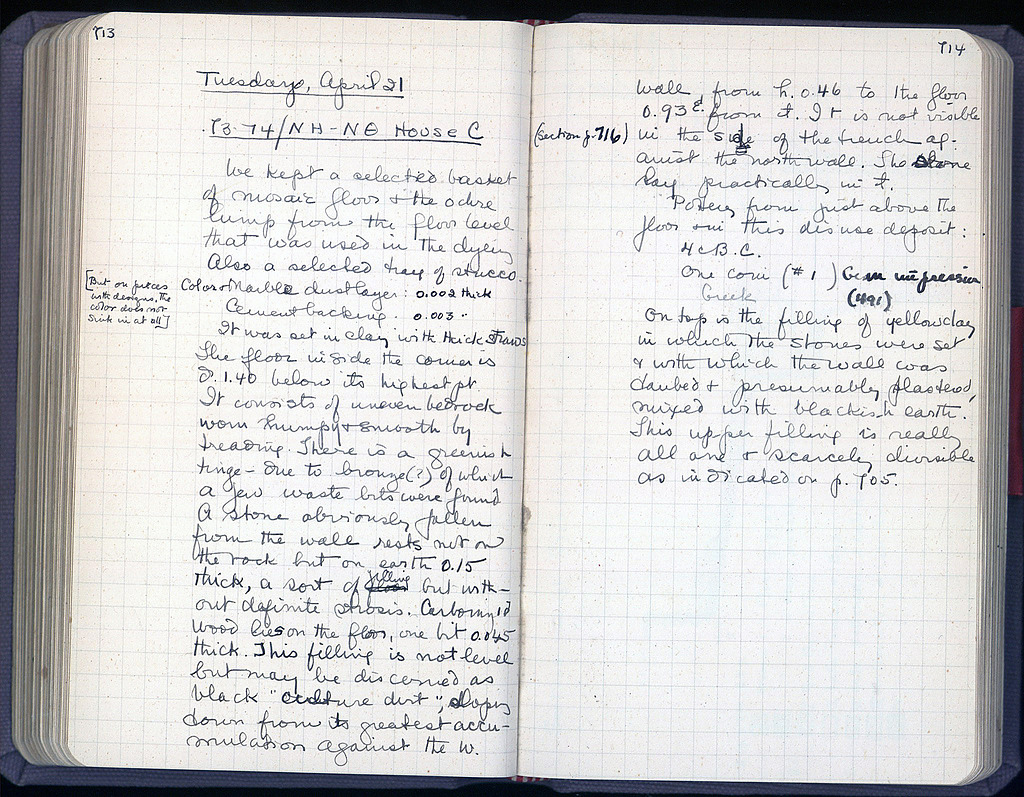 713
Tuesday, April 21
73-74/NH-NΘ House C
We kept a selected basket
of mosaic floor & the ochre
lump from the floor level
that was used in the dyeing
Also a selected tray of stucco.
[But on pieces
with designs, the
color does not
sink in at all]
Color & Marble dust layer: 0.002 thick
Cement backing. 0.003 "
It was set in clay with thick straws
The floor inside the corner is
d. 1.40 below its highest pt.
It consists of uneven bedrock
worn humpy & smooth by
treading. There is a greenish
tinge - due to bronze(?) of which
a few waste bits were found
A stone obviously fallen
from the wall rests not on
the rock but on earth 0.15
thick, a sort of filling but with-
out definite strosis. Carbonyzd
wood lies on the floor, one bit 0.045
thick. This filling is not level
but may be discerned as
black "culture dirt", slopes
down from its greatest accu-
mulation against the W.
714
wall, from h. 0.46 to the floor
0.93 from it. It is not visible
(Section p. 716)
in the side of the trench ag-
ainst the north wall. The stone
lay practically in it.
Pottery from just above the
floor in this disuse deposit:
4 c B.C.
One coin (#1) Gem impression
Greek (491)
On top is the filling of yellow clay
in which the stones were set
& with which the wall was
daubed & presumably plastered,
mixed with blackish earth.
This upper filling is really
all one & scarcely divisible
as indicated on p. 705.